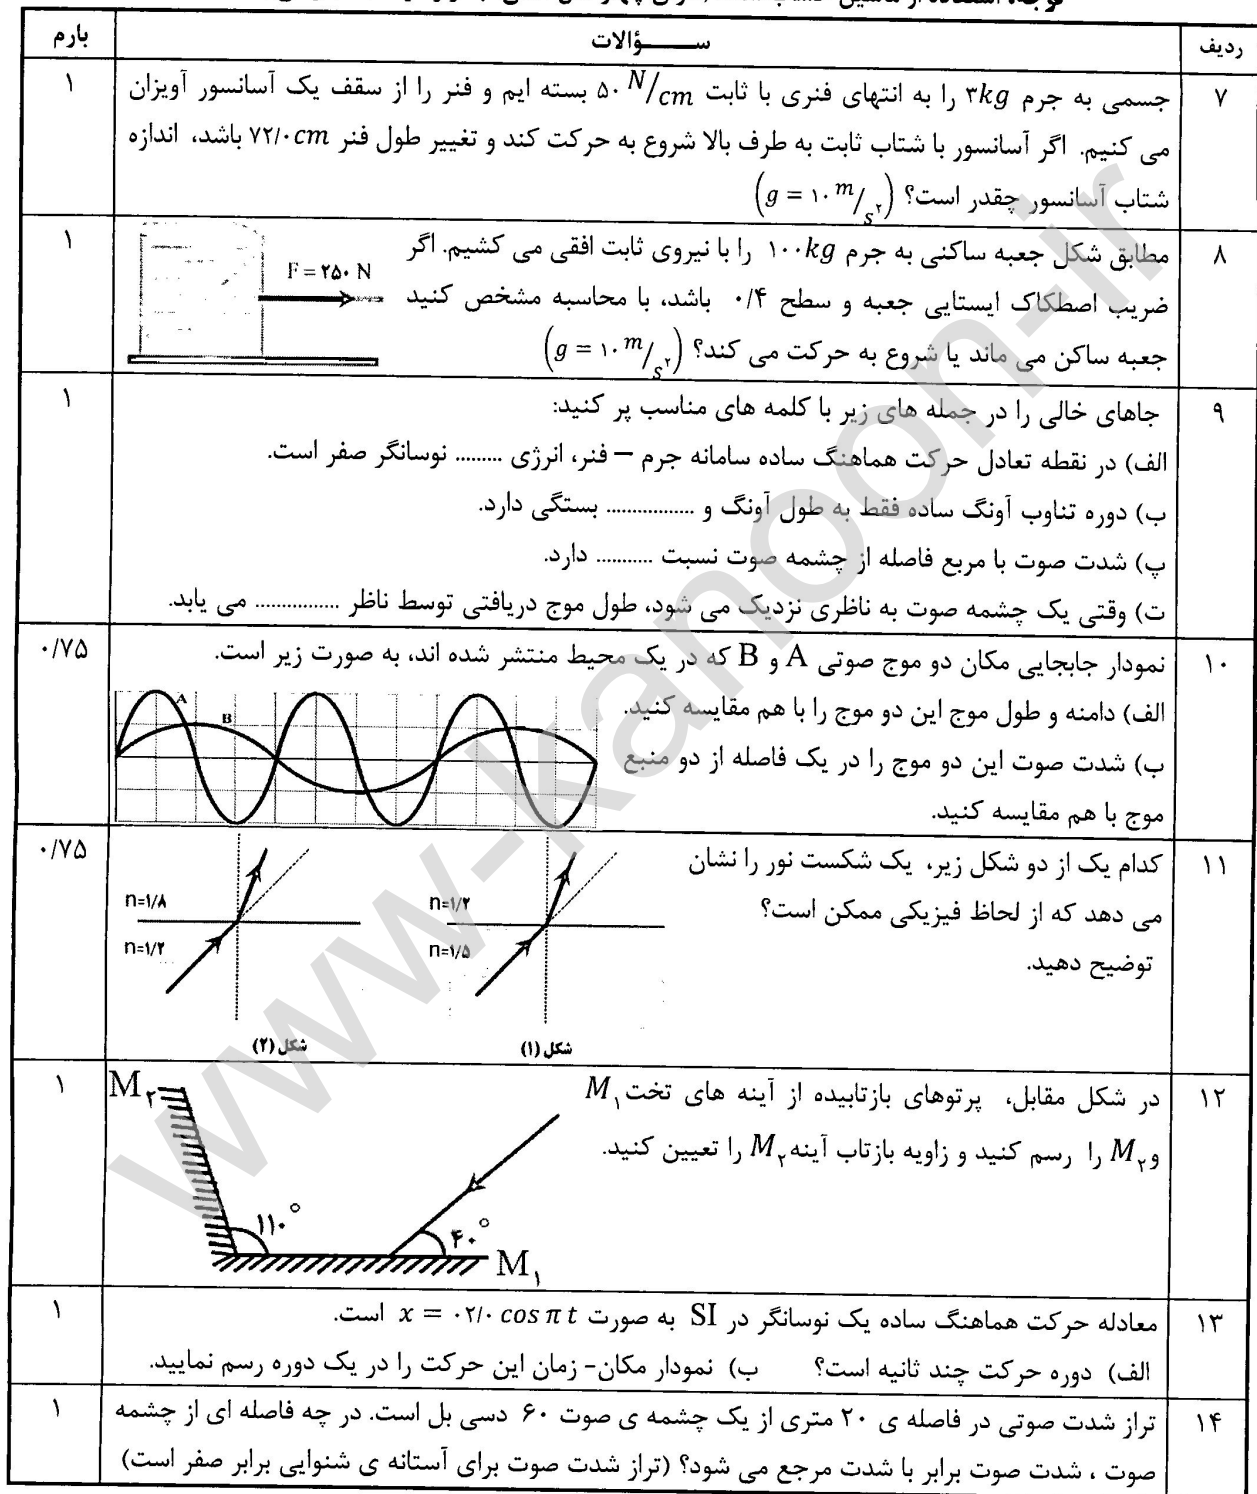 ردیف	ســـــؤالات	بارم
۷	جسمی به جرم ۳kg را به انتهای فنری با ثابت ۵۰ N/cm بسته ایم و فنر را از سقف یک آسانسور آویزان	۱
می کنیم. اگر آسانسور با شتاب ثابت به طرف بالا شروع به حرکت کند و تغییر طول فنر ۷۲/۰cm باشد، اندازه
شتاب آسانسور چقدر است؟ (g = ۱۰ m/s۲)
۸	مطابق شکل جعبه ساکنی به جرم ۱۰۰kg را با نیروی ثابت افقی می کشیم. اگر	۱
ضریب اصطکاک ایستایی جعبه و سطح ۰/۴ باشد، با محاسبه مشخص کنید
جعبه ساکن می ماند یا شروع به حرکت می کند؟ (g = ۱۰ m/s۲)
F = ۲۵۰ N
۹	جاهای خالی را در جمله های زیر با کلمه های مناسب پر کنید:	۱
الف) در نقطه تعادل حرکت هماهنگ ساده سامانه جرم – فنر، انرژی ......... نوسانگر صفر است.
ب) دوره تناوب آونگ ساده فقط به طول آونگ و ................. بستگی دارد.
پ) شدت صوت با مربع فاصله از چشمه صوت نسبت ........... دارد.
ت) وقتی یک چشمه صوت به ناظری نزدیک می شود، طول موج دریافتی توسط ناظر ................ می یابد.
۱۰	نمودار جابجایی مکان دو موج صوتی A و B که در یک محیط منتشر شده اند، به صورت زیر است.	۰/۷۵
الف) دامنه و طول موج این دو موج را با هم مقایسه کنید.
ب) شدت صوت این دو موج را در یک فاصله از دو منبع
موج با هم مقایسه کنید.
A
B
۱۱	کدام یک از دو شکل زیر، یک شکست نور را نشان	۰/۷۵
می دهد که از لحاظ فیزیکی ممکن است؟
توضیح دهید.
n=۱/۲
n=۱/۵
شکل (۱)
n=۱/۸
n=۱/۲
شکل (۲)
۱۲	در شکل مقابل، پرتوهای بازتابیده از آینه های تخت M۱	۱
و M۲ را رسم کنید و زاویه بازتاب آینه M۲ را تعیین کنید.
M۲
۱۱۰°
۴۰°
M۱
۱۳	معادله حرکت هماهنگ ساده یک نوسانگر در SI به صورت x = ۰۲/۰ cos π t است.	۱
الف) دوره حرکت چند ثانیه است؟ ب) نمودار مکان- زمان این حرکت را در یک دوره رسم نمایید.
۱۴	تراز شدت صوتی در فاصله ی ۲۰ متری از یک چشمه ی صوت ۶۰ دسی بل است. در چه فاصله ای از چشمه	۱
صوت ، شدت صوت برابر با شدت مرجع می شود؟ (تراز شدت صوت برای آستانه ی شنوایی برابر صفر است)
www-kanoon-ir